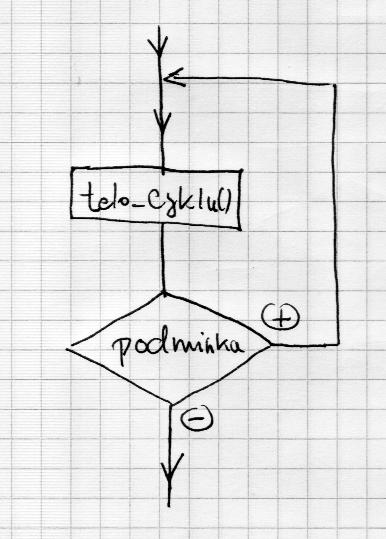 telo_cyklu()
+
podmínka
-